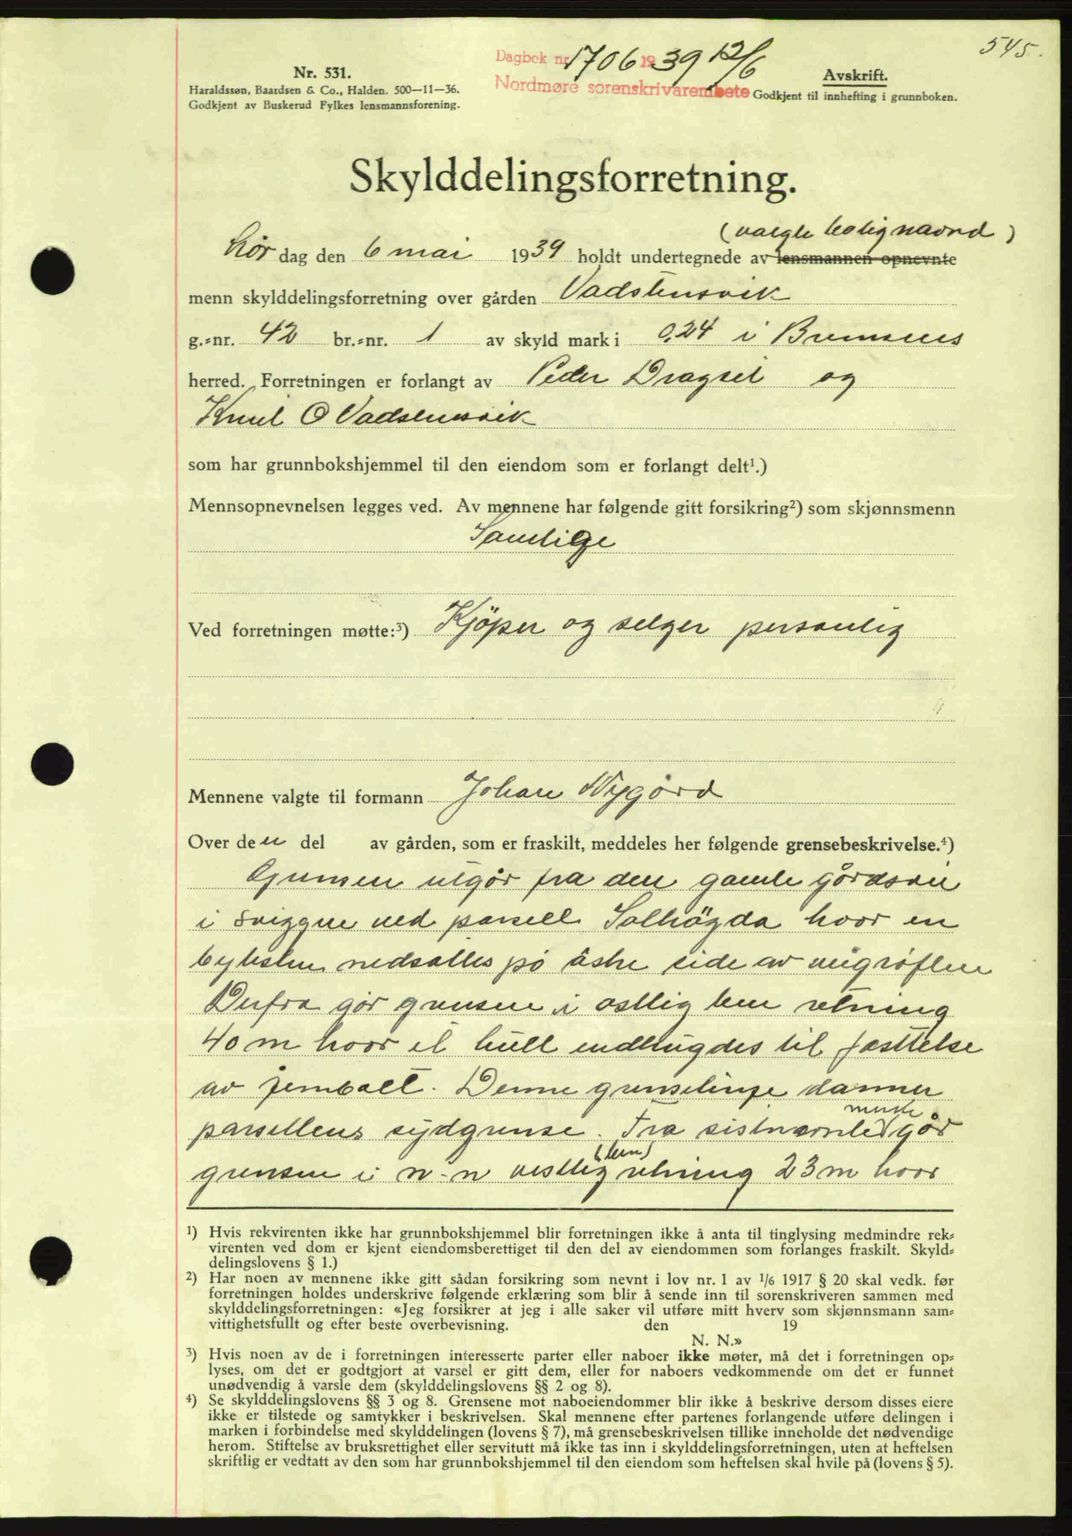 545.
Nr. 531.
Haraldssøn, Baardsen & Co., Halden. 500—11—36.
Godkjent av Buskerud Fylkes lensmannsforening.
Dagbok nr. 1706 1939 12/6
Nordmøre sorenskrivarembete
Avskrift.
Godkjent til innhefting i grunnboken.
Skylddelingsforretning.
(valgte bolignævnd)
Lør dag den 6 mai 1939 holdt undertegnede av lensmannen opnevnte
menn skylddelingsforretning over gården Vadstensvik
g.=nr. 42 br.=nr. 1 av skyld mark i 0,24 i Bremsnes
herred. Forretningen er forlangt av Peder Dragset og
Knut O Vadstensvik
som har grunnbokshjemmel til den eiendom som er forlangt delt¹.)
Mennsopnevnelsen legges ved. Av mennene har følgende gitt forsikring²) som skjønnsmenn
Samtlige
Ved forretningen møtte:³) Kjöper og selger personlig
Mennene valgte til formann Johan Nygård
Over den del av gården, som er fraskilt, meddeles her følgende grensebeskrivelse.⁴)
Grensen utgår fra den gamle gårdsvei
i svingen ved parsell Solhögda hvor en
bytesten nedsattes på östre side av veigröften
Derfra går grensen i østlig retning
40 m hvor et hull indhugdes til fæsttelse
av jernbolt. Denne grenselinje danner
parsellens sydgrense. Fra sistnævnte merke går
grensen i n-n vestlig retning 23 m hvor
¹) Hvis rekvirenten ikke har grunnbokshjemmel blir forretningen ikke å anta til tinglysing medmindre rek=
virenten ved dom er kjent eiendomsberettiget til den del av eiendommen som forlanges fraskilt. Skyld=
delingslovens § 1.)
²) Har noen av mennene ikke gitt sådan forsikring som nevnt i lov nr. 1 av 1/6 1917 § 20 skal vedk. før
forretningen holdes underskrive følgende erklæring som blir å sende inn til sorenskriveren sammen med
skylddelingsforretningen: «Jeg forsikrer at jeg i alle saker vil utføre mitt hverv som skjønnsmann sam=
vittighetsfullt og efter beste overbevisning. den 19
N. N.»
³) Hvis noen av de i forretningen interesserte parter eller naboer ikke møter, må det i forretningen op=
lyses, om det er godtgjort at varsel er gitt dem, eller for naboers vedkommende om det er funnet
unødvendig å varsle dem (skylddelingslovens §§ 2 og 8).
⁴) Se skylddelingslovens §§ 3 og 8. Grensene mot naboeiendommer blir ikke å beskrive dersom disses eiere
ikke er tilstede og samtykker i beskrivelsen. Skal mennene efter partenes forlangende utføre delingen i
marken i forbindelse med skylddelingen (lovens § 7), må grensebeskrivelsen tillike inneholde det nødvendige
herom. Stiftelse av bruksrettighet eller servitutt må ikke tas inn i skylddelingsforretningen, uten at heftelsen
skriftlig er vedtatt av den som har grunnbokshjemmel til den eiendom som heftelsen skal hvile på (lovens § 5).